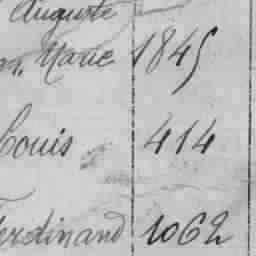 Auguste
Marie 1845
Louis 414
Ferdinand 1062